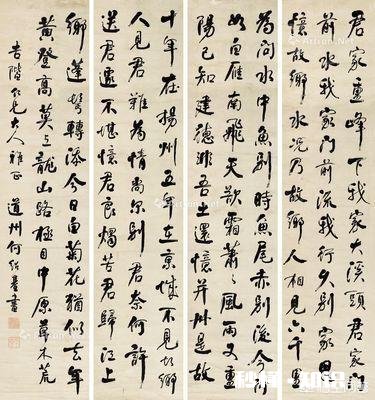 君家重峰下我家大溪頭君家門
前水我家門前流我行久別家思
憶故鄉水況乃故鄉人相見六千里
為問水中魚別時魚尾赤別後今何
如白雁南飛天欲霜蕭蕭風雨又重
陽已知建德非吾土還憶并州是故
十年在揚州五年在京城不見故鄉
人見君難為情尚爾別君奈何許
送君遽不堪憶君良獨苦君歸江上
鄉蓬鬢轉添今日白菊花猶似去年
黃登高莫上龍山路極目中原草木荒
吉階仁兄大人雅正 道州何紹基書
秒懂·知识